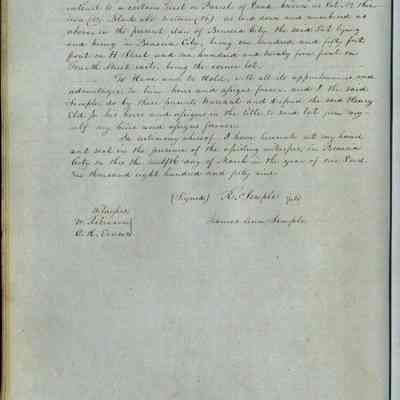 interest to a certain Tract or Parcel of Land known as Lot No thir-
teen (13) Block No Sixteen (16) as laid down and numbered as
above in the present plan of Benicia City, the said Lot lying
and being in Benicia City, being one hundred and fifty feet
front on H Street and one hundred and twenty five feet on
Fourth Street east, being the corner lot.
To Have and to Hold, with all its appurtenances and
advantages to him heirs and assigns forever and I the said
Semple do by these presents Warrant and defend the said Henry
his heirs and assigns in the title to said lot from my-
self my heirs and assigns forever
In testimony whereof I have hereunto set my hand
and seal in the presence of the witnesses, in Benicia
City on this the twelfth day of March in the year of our Lord
One thousand eight hundred and fifty one.
(Signed) R. Semple
Witnesses
W.
Frances Ann Semple